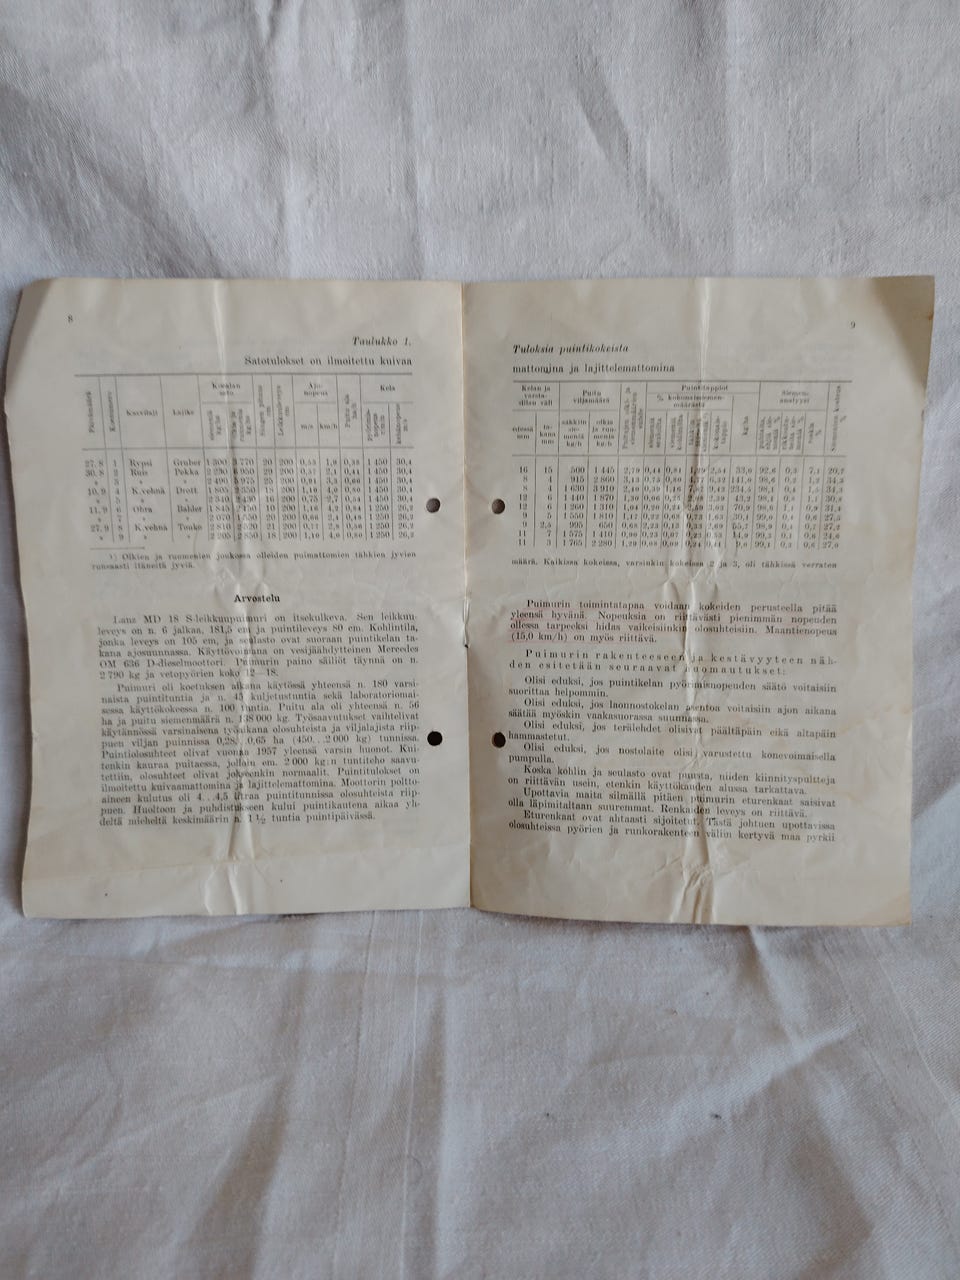 8
Taulukko 1.
Satotulokset on ilmoitettu kuivaa
Päivämäärä Koenumero Kasvilaji Lajike Kokealan sato Sängen pituus cm Leikkuuleveys cm Ajonopeus Puitu ala ha/h Kela
siemeniä kg/ha ruumenia kg/ha m/s km/h kehänopeus m/s
27. 8 1 Rypsi Gruber 1 300 3 770 20 200 1,9 0,38 1 450 30,4
30. 8 2 Ruis Pekka 2 230 6 950 20 200 2,1 0,41 1 450 30,4
» 3 » » 2 490 5 975 25 200 0,91 3,3 0,66 1 450 30,4
10. 9 4 K.vehnä Drott 1 805 18 200 1,10 4,0 0,80 1 450 30,4
» 5 » » 2 340 16 200 0,75 2,7 0,54 1 450 30,4
11. 9 6 Ohra Balder 1 845 10 200 1,16 4,2 0,84 1 250 26,2
» 7 » » 2 070 20 200 0,66 2,4 0,48 1 250 26,2
27. 9 8 K.vehnä Touko 2 810 21 200 2,8 0,56 1 250 26,2
» 9 » » 2 205 18 200 1,10 4,0 0,80 1 250 26,2
¹) Olkien ja ruumenien joukossa olleiden puimattomien tähkien jyvien
runsaasti itäneitä jyviä.
Arvostelu
Lanz MD 18 S-leikkuupuimuri on itsekulkeva. Sen leikkuu-
leveys on n. 6 jalkaa, 181,5 cm ja puintileveys 80 cm. Kohlintila,
jonka leveys on 105 cm, ja seulasto ovat suoraan puintikelan ta-
kana ajosuunnassa. Käyttövoimana on vesijäähdytteinen Mercedes
OM 636 D-dieselmoottori. Puimurin paino säiliöt täynnä on n.
2 790 kg ja vetopyörien koko 12—18.
Puimuri oli koetuksen aikana käytössä yhteensä n. 180 varsi-
naista puintituntia ja n. 45 kuljetustuntia sekä laboratoriomai-
sessa käyttökokeessa n. 100 tuntia. Puitu ala oli yhteensä n. 56
ha ja puitu siemenmäärä n. 138 000 kg. Työsaavutukset vaihtelivat
käytännössä varsinaisena työaikana olosuhteista ja viljalajista riip-
puen viljan puinnissa 0,28...0,65 ha (450...2 000 kg) tunnissa.
Puintiolosuhteet olivat vuonna 1957 yleensä varsin huonot. Kui-
tenkin kauraa puitaessa, jolloin em. 2 000 kg:n tuntiteho saavu-
tettiin, olosuhteet olivat jokseenkin normaalit. Puintitulokset on
ilmoitettu kuivaamattomina ja lajittelemattomina. Moottorin poltto-
aineen kulutus oli 4...4,5 litraa puintitunnissa olosuhteista riip-
puen. Huoltoon ja puhdistukseen kului puintikautena aikaa yh-
deltä mieheltä keskimäärin n. 1 ½ tuntia puintipäivässä.
9
Tuloksia puintikokeista
mattomina ja lajittelemattomina
Kelan ja varstasillan väli Puitu viljamäärä Puintitappiot Siemenanalyysi Siementen kosteus %
% kokonaissiemenmäärästä
edessä mm takana mm säkkiin siemeniä kg/h olkia ja ruumenia kg/h kg/ha roskia %
16 15 500 1 445 2,79 0,44 0,81 1,29 2,54 33,0 92,6 0,3 7,1 20,2
8 4 915 2 860 3,13 0,75 0,80 6,32 141,0 98,4 1,2 34,3
8 4 1 630 3 910 2,40 1,46 9,43 234,5 98,1 0,4 1,5 34,3
12 6 1 440 1 870 1,30 0,06 2,39 43,2 98,4 1,1 30,4
12 6 1 260 1 310 1,04 0,20 3,03 70,9 98,6 0,9 31,4
9 5 1 550 1 810 1,17 0,22 0,68 0,73 1,63 30,4 99,0 0,6 27,3
9 2,5 995 650 0,68 2,23 0,13 0,33 2,69 55,7 99,0 27,2
11 7 1 575 1 410 0,90 0,23 0,07 0,23 0,53 14,9 99,3 0,1 0,6 24,0
11 3 1 765 2 280 1,29 0,08 0,09 0,24 0,41 99,1 0,3 0,6 27,0
määrä. Kaikissa kokeissa, varsinkin kokeissa 2 ja 3, oli tähkissä verraten
Puimurin toimintatapaa voidaan kokeiden perusteella pitää
yleensä hyvänä. Nopeuksia on riittävästi pienimmän nopeuden
ollessa tarpeeksi hidas vaikeisiinkin olosuhteisiin. Maantienopeus
(15,0 km/h) on myös riittävä.
Puimurin rakenteeseen ja kestävyyteen näh-
den esitetään seuraavat huomautukset:
Olisi eduksi, jos puintikelan pyörimisnopeuden säätö voitaisiin
suorittaa helpommin.
Olisi eduksi, jos laonnostokelan asentoa voitaisiin ajon aikana
säätää myöskin vaakasuorassa suunnassa.
Olisi eduksi, jos terälehdet olisivat päältäpäin eikä altapäin
hammastetut.
Olisi eduksi, jos nostolaite olisi varustettu konevoimaisella
pumpulla.
Koska kohlin ja seulasto ovat puusta, niiden kiinnityspultteja
on riittävän usein, etenkin käyttökauden alussa tarkattava.
Upottavia maita silmällä pitäen puimurin eturenkaat saisivat
olla läpimitaltaan suuremmat. Renkaiden leveys on riittävä.
Eturenkaat ovat ahtaasti sijoitetut. Tästä johtuen upottavissa
olosuhteissa pyörien ja runkorakenteen väliin kertyvä maa pyrkii